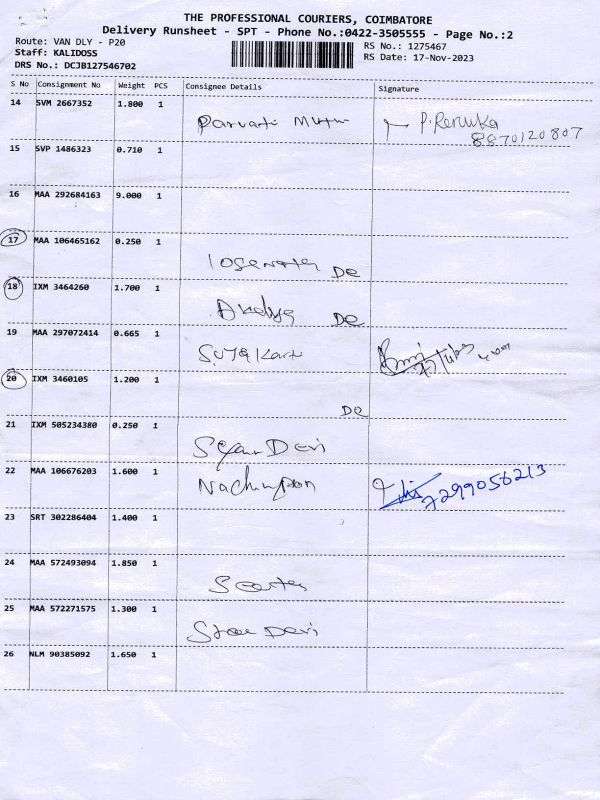 THE PROFESSIONAL COURIERS, COIMBATORE
Delivery Runsheet - SPT - Phone No.:0422-3505555 - Page No.:2
Route: VAN DLY - P20
RS No.: 1275467
Staff: KALIDOSS
RS Date: 17-Nov-2023
DRS No.: DCJB127546702
S No Consignment No Weight PCS Consignee Details Signature
14 SVM 2667352 1.800 1
P.Renuka
8870120807
15 SVP 1486323 0.710 1
16 MAA 292684163 9.000 1
17 MAA 106465162 0.250 1
DE
18 IXM 3464260 1.700 1
DE
19 MAA 297072414 0.665 1
20 IXM 3460105 1.200 1
DE
21 IXM 505234380 0.250 1
Devi
22 MAA 106676203 1.600 1
7299056213
23 SRT 302286404 1.400 1
24 MAA 572493094 1.850 1
25 MAA 572271575 1.300 1
Devi
26 NLM 90385092 1.650 1